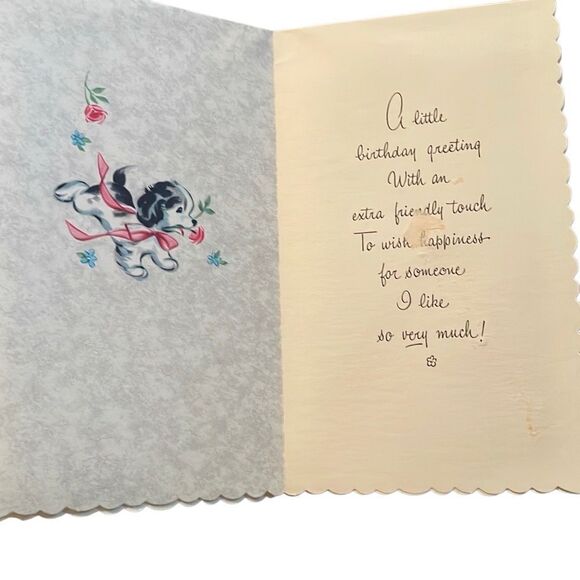 A little
birthday greeting
With an
extra friendly touch
To wish happiness
for someone
I like
so very much!